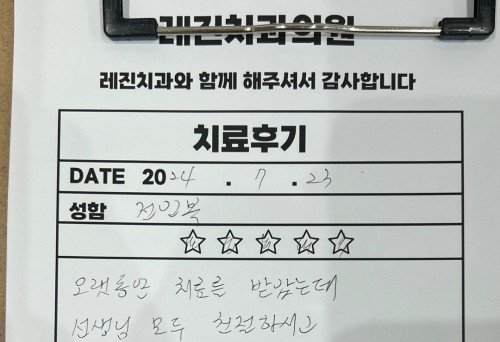 레진치과의원
레진치과와 함께 해주셔서 감사합니다
치료후기
DATE 2024 . 7 . 23
성함 전인복
오랫동안 치료를 받았는데
선생님 모두 친절하시고